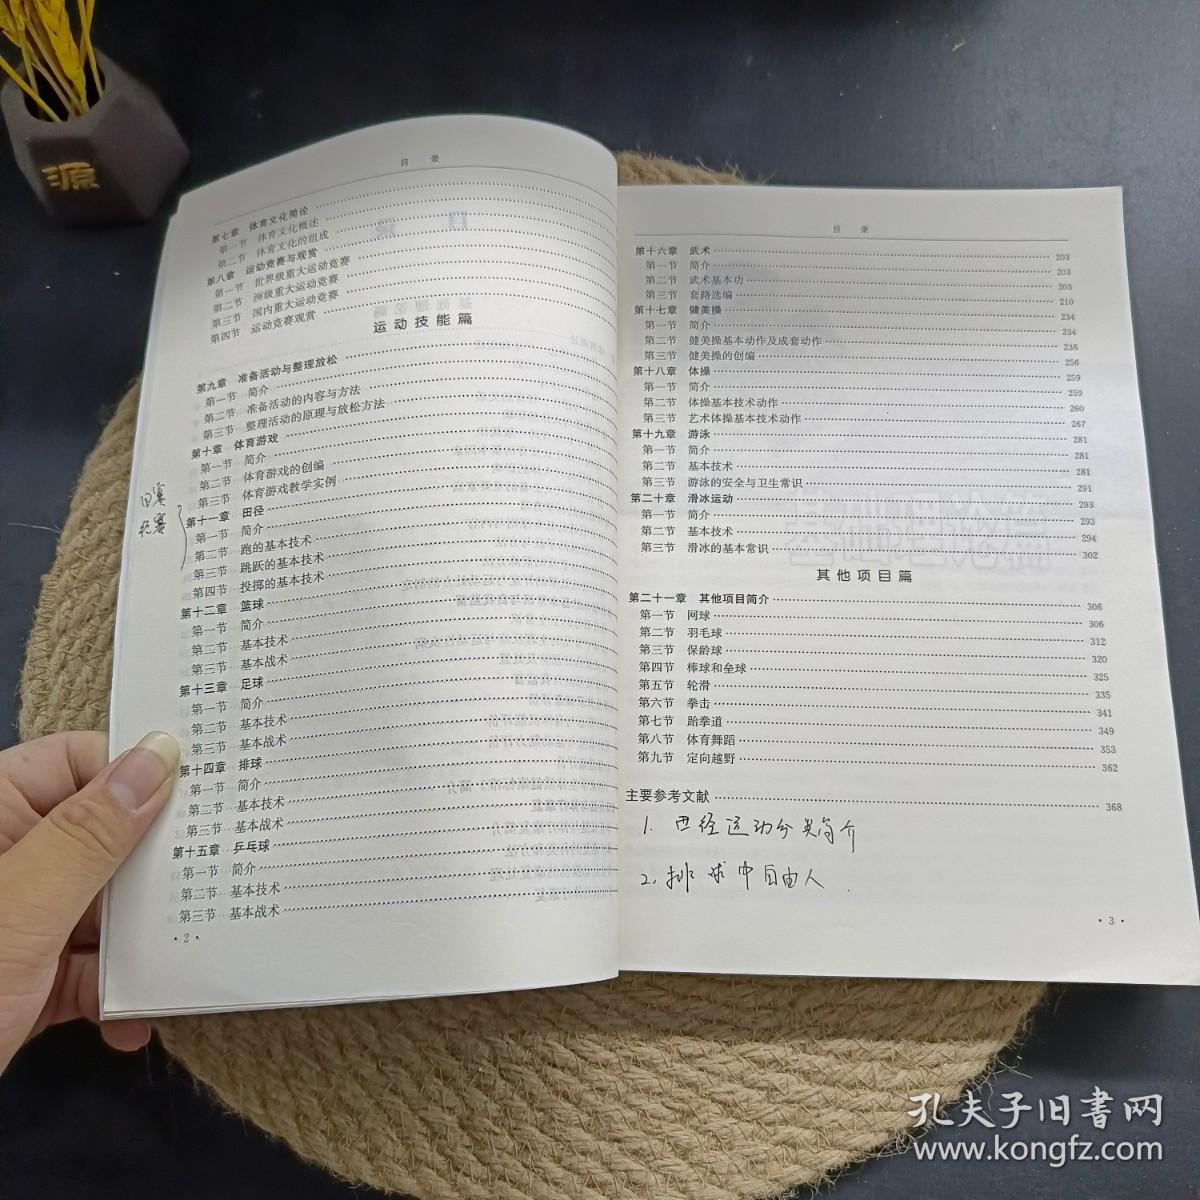 源
目 录
第七章 体育文化简论
第一节 体育文化概述
第二节 体育文化的组成
第八章 运动竞赛与观赏
第一节 世界级重大运动竞赛
第二节 洲级重大运动竞赛
第三节 国内重大运动竞赛
第四节 运动竞赛观赏
运动技能篇
第九章 准备活动与整理放松
第一节 简介
第二节 准备活动的内容与方法
第三节 整理活动的原理与放松方法
第十章 体育游戏
第一节 简介
第二节 体育游戏的创编
第三节 体育游戏教学实例
第十一章 田径
第一节 简介
第二节 跑的基本技术
第三节 跳跃的基本技术
第四节 投掷的基本技术
第十二章 篮球
第一节 简介
第二节 基本技术
第三节 基本战术
第十三章 足球
第一节 简介
第二节 基本技术
第三节 基本战术
第十四章 排球
第一节 简介
第二节 基本技术
第三节 基本战术
第十五章 乒乓球
第一节 简介
第二节 基本技术
第三节 基本战术
· 2 ·
目 录
第十六章 武术 203
第一节 简介 203
第二节 武术基本功 203
第三节 套路选编 210
第十七章 健美操 234
第一节 简介 234
第二节 健美操基本动作及成套动作 236
第三节 健美操的创编 256
第十八章 体操 259
第一节 简介 259
第二节 体操基本技术动作 260
第三节 艺术体操基本技术动作 267
第十九章 游泳 281
第一节 简介 281
第二节 基本技术 281
第三节 游泳的安全与卫生常识 291
第二十章 滑冰运动 293
第一节 简介 293
第二节 基本技术 294
第三节 滑冰的基本常识 302
其他项目篇
第二十一章 其他项目简介 306
第一节 网球 306
第二节 羽毛球 312
第三节 保龄球 320
第四节 棒球和垒球 325
第五节 轮滑 335
第六节 拳击 341
第七节 跆拳道 349
第八节 体育舞蹈 353
第九节 定向越野 362
主要参考文献 368
1. 田径运动分类简介
2. 排球中自由人
· 3 ·
孔夫子旧书网
www.kongfz.com